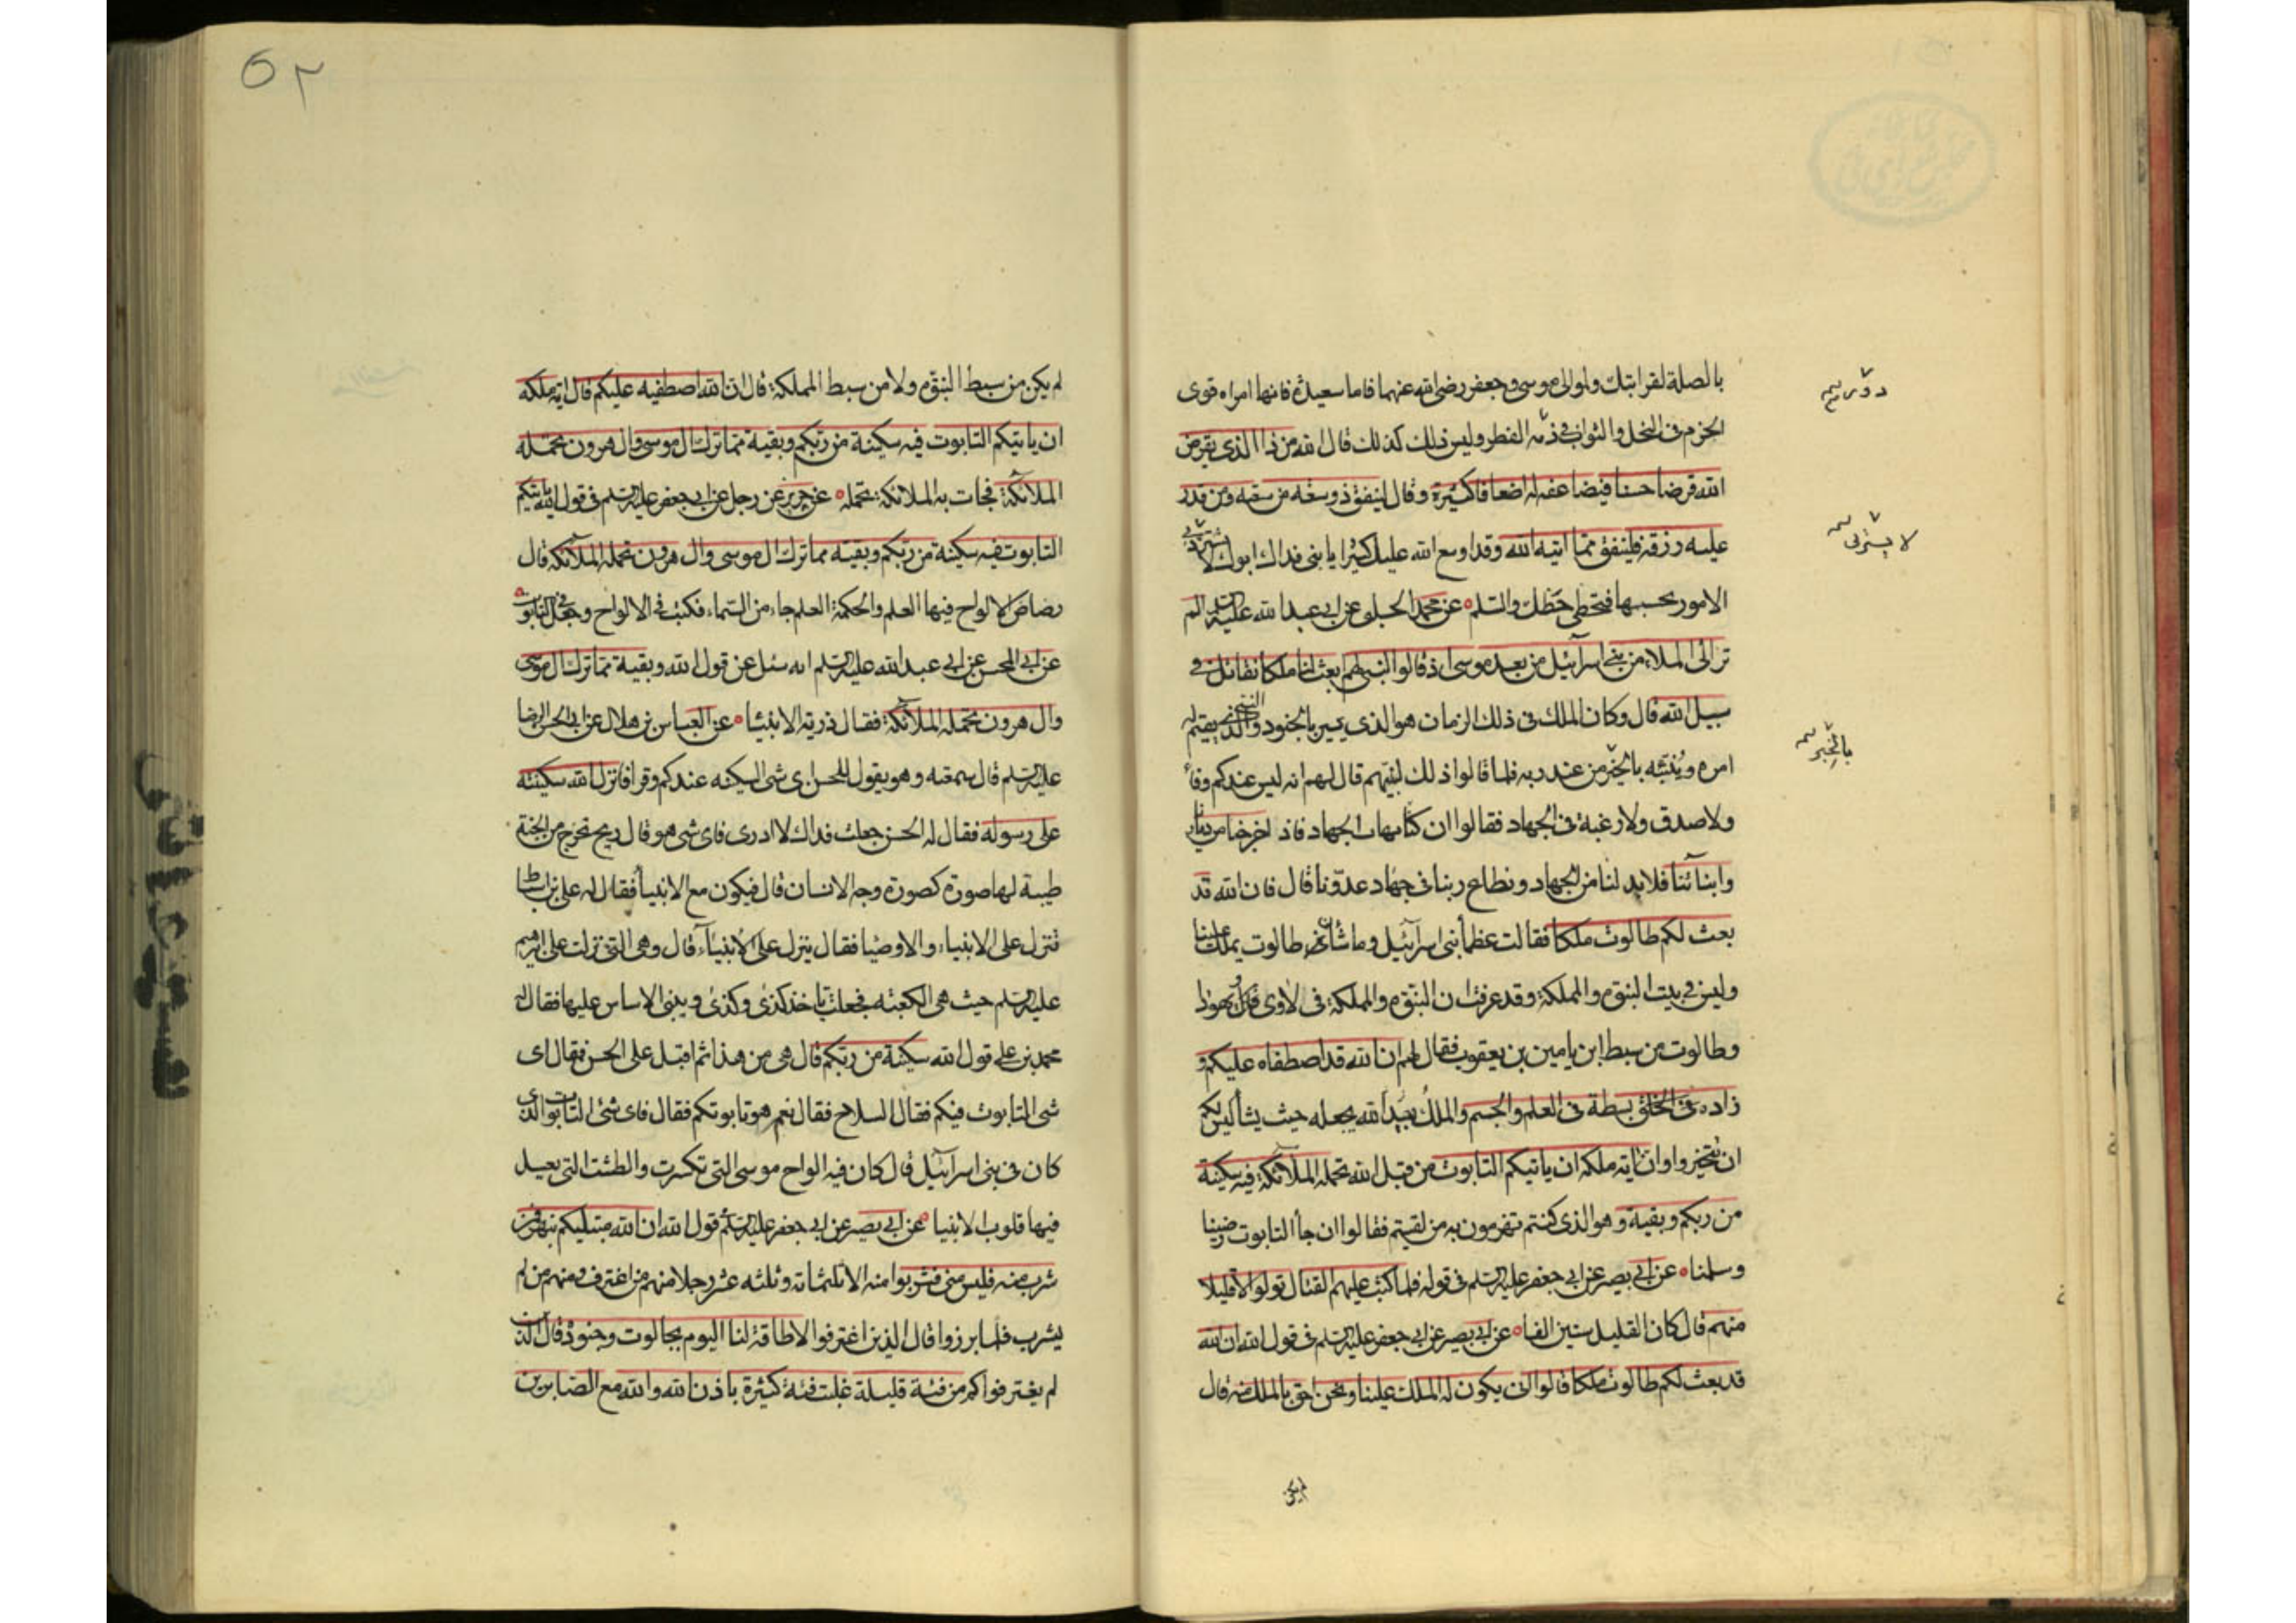 بالصلة لقرابتك ولموالى موسى وجعفر رضى الله عنهما فاما سعيدة فانها امراه قوى
الجزم فى النحل والثواب فى ذمه الفطر وليس ذلك كذلك قال الله من ذا الذى يقرض
الله قرضا حسنا فيضاعفه له اضعافا كثيرة وقال لينفق ذو سعة من سعته ومن قدر
عليه رزقه فلينفق مما اتيه الله وقد اوسع الله عليك كثيرا يا بنى فداك ابوك لا
الامور بحسبها فتخطى حظك والسلم عن محمد الحلبى عن ابى عبد الله عليه السلم الم
تر الى الملاء من بنى اسرآئيل من بعد موسى اذ قالوا لنبى لهم ابعث لنا ملكا نقاتل فى
سبيل الله قال وكان الملك فى ذلك الزمان هو الذى يسير بالجنود والنبى يقيم له
امره وينبئه بالخبر من عند ربه فلما قالوا ذلك لنبيهم قال لهم انه ليس عندكم وفاء
ولا صدق ولا رغبة فى الجهاد فقالوا ان كتب الجهاد فاذا اخرجنا من ديارنا
وابنآئنا فلا بد لنا من الجهاد ونطاع ربنا فى جهاد عدونا قال فان الله قد
بعث لكم طالوت ملكا فقالت عظماء بنى اسرآئيل وما شان طالوت يملك علينا
وليس فى بيت النبوة والمملكة وقد عرفت ان النبوة والمملكة فى لاوى ويهودا
وطالوت من سبط ابن يامين بن يعقوب فقال لهم ان الله قد اصطفاه عليكم و
زاده بسطة فى العلم والجسم والملك بيد الله يجعله حيث يشاء ليس لكم
ان تختيروا وان اية ملكه ان ياتيكم التابوت من قبل الله تحمله الملآئكة فيه سكينة
من ربكم وبقية وهو الذى كنتم تهزمون به من لقيتم فقالوا ان جاء التابوت رضينا
وسلمنا عن ابى بصير عن ابى جعفر عليه السلم فى قوله فلما كتب عليهم القتال تولوا الا قليلا
منهم قال كان القليل ستين الفا عن ابى بصير عن ابى جعفر عليه السلم فى قول الله ان الله
قد بعث لكم طالوت ملكا قالوا انى يكون له الملك علينا ونحن احق بالملك منه قال
لا يشترى
بالخبر
لم يكن
٥٢
لم يكن من سبط النبوة ولا من سبط المملكة قال ان الله اصطفيه عليكم قال اية ملكه
ان ياتيكم التابوت فيه سكينة من ربكم وبقية مما ترك ال موسى وال هرون تحمله
الملائكة فجات به الملائكة تحمله عن حريز عن رجل عن ابى جعفر عليه السلم فى قول الله ياتيكم
التابوت فيه سكينة من ربكم وبقية مما ترك ال موسى وال هرون تحمله الملآئكة قال
رضاض الالواح فيها العلم والحكمة العلم جاء من السماء فكتب فى الالواح وجعل فى التابوت
عن ابى الحسن عن ابى عبد الله عليه السلم انه سئل عن قول الله وبقية مما ترك ال موسى
وال هرون تحمله الملآئكة فقال ذرية الانبيا عن العباس بن هلال عن ابى الحسن الرضا
عليه السلم قال سمعته وهو يقول للحسن اى شى السكينه عندكم وقرا فانزل الله سكينته
على رسوله فقال له الحسن جعلت فداك لا ادرى فاى شى هو قال ريح تخرج من الجنة
طيبة لها صورة كصورة وجه الانسان قال فيكون مع الانبياء فقال له على بن اسباط
تنزل على الانبياء والاوصيا فقال ينزل على الانبيآء قال وهى التى نزلت على ابرهيم
عليه السلم حيث هى الكعبه فجعلت تاخذ كذى وكذى وبنى الاساس عليها فقال له
محمد بن على قول الله سكينة من ربكم قال هى من هذا ثم اقبل على الحسن فقال اى
شى التابوت فيكم فقال السلاح فقال نعم هو تابوتكم فقال فاى شئ التابوت الذى
كان فى بنى اسرآئيل قال كان فيه الواح موسى التى تكسرت والطشت التى يغسل
فيها قلوب الانبيا عن ابى بصير عن ابى جعفر عليه السلم قول الله ان الله مبتليكم بنهر فمن
شرب منه فليس منى فشربوا منه الا ثلثمائه وثلثه عشر رجلا منهم من اغترف ومنهم من لم
يشرب فلما برزوا قال الذين اغترفوا لا طاقة لنا اليوم بجالوت وجنوده قال الذين
لم يغترفوا كم من فئة قليلة غلبت فئة كثيرة باذن الله والله مع الصابرين